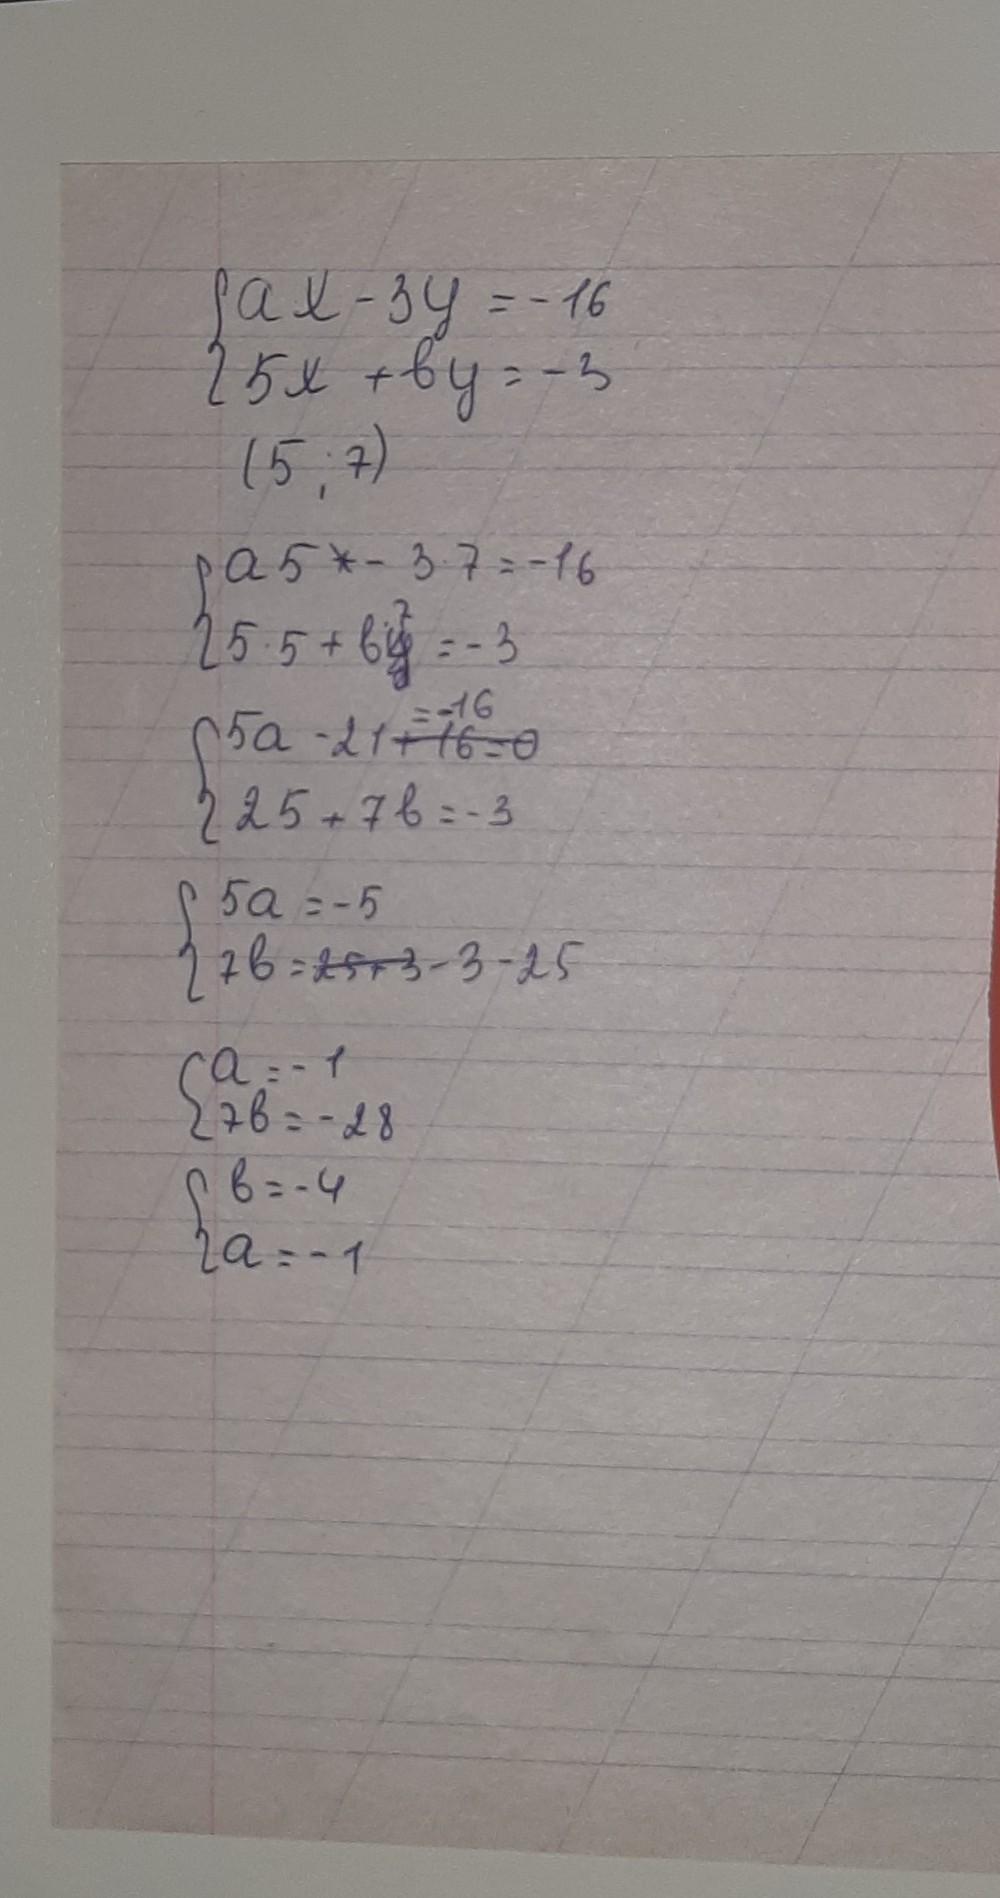 {ax - 3y = -16
{5x + by = -3
(5 ; 7)
{a 5 - 3·7 = -16
{5·5 + b·7 = -3
{5a - 21 = -16
+ 16 = 0
{25 + 7b = -3
{5a = -5
{7b = 25+3 -3 -25
{a = -1
{7b = -28
{b = -4
{a = -1